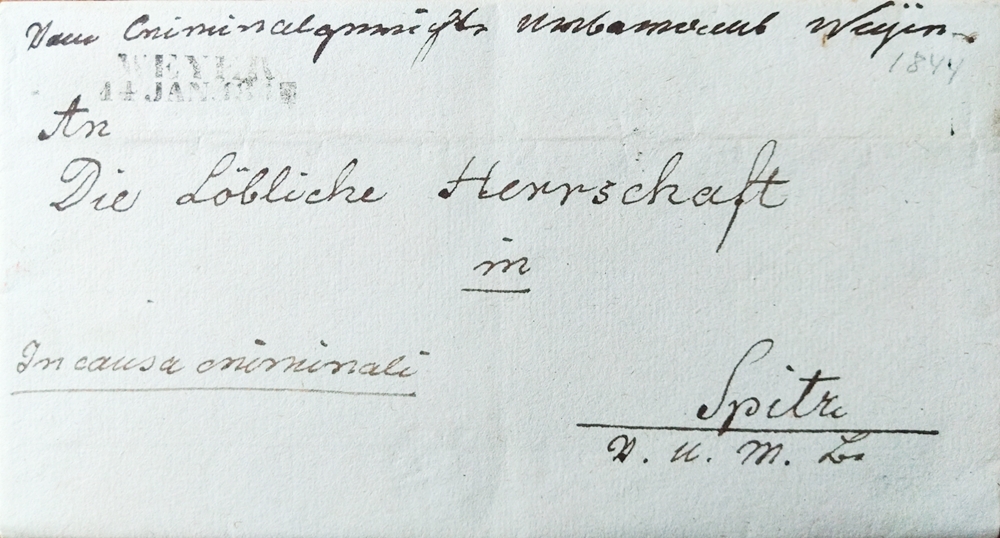 Vom Criminalgerichte Weyer
1844
WEYER
14 JAN
An
Die Löbliche Herrschaft
in
In causa criminali
Spitz
V. U. M. B.